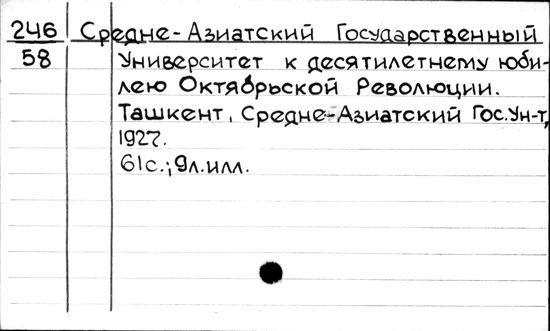 246 Средне-Азиатский Государственный
58 Университет к десятилетнему юби-
лею Октябрьской Революции.
Ташкент, Средне-Азиатский Гос.Ун-т,
1927.
61с.; 9л.илл.